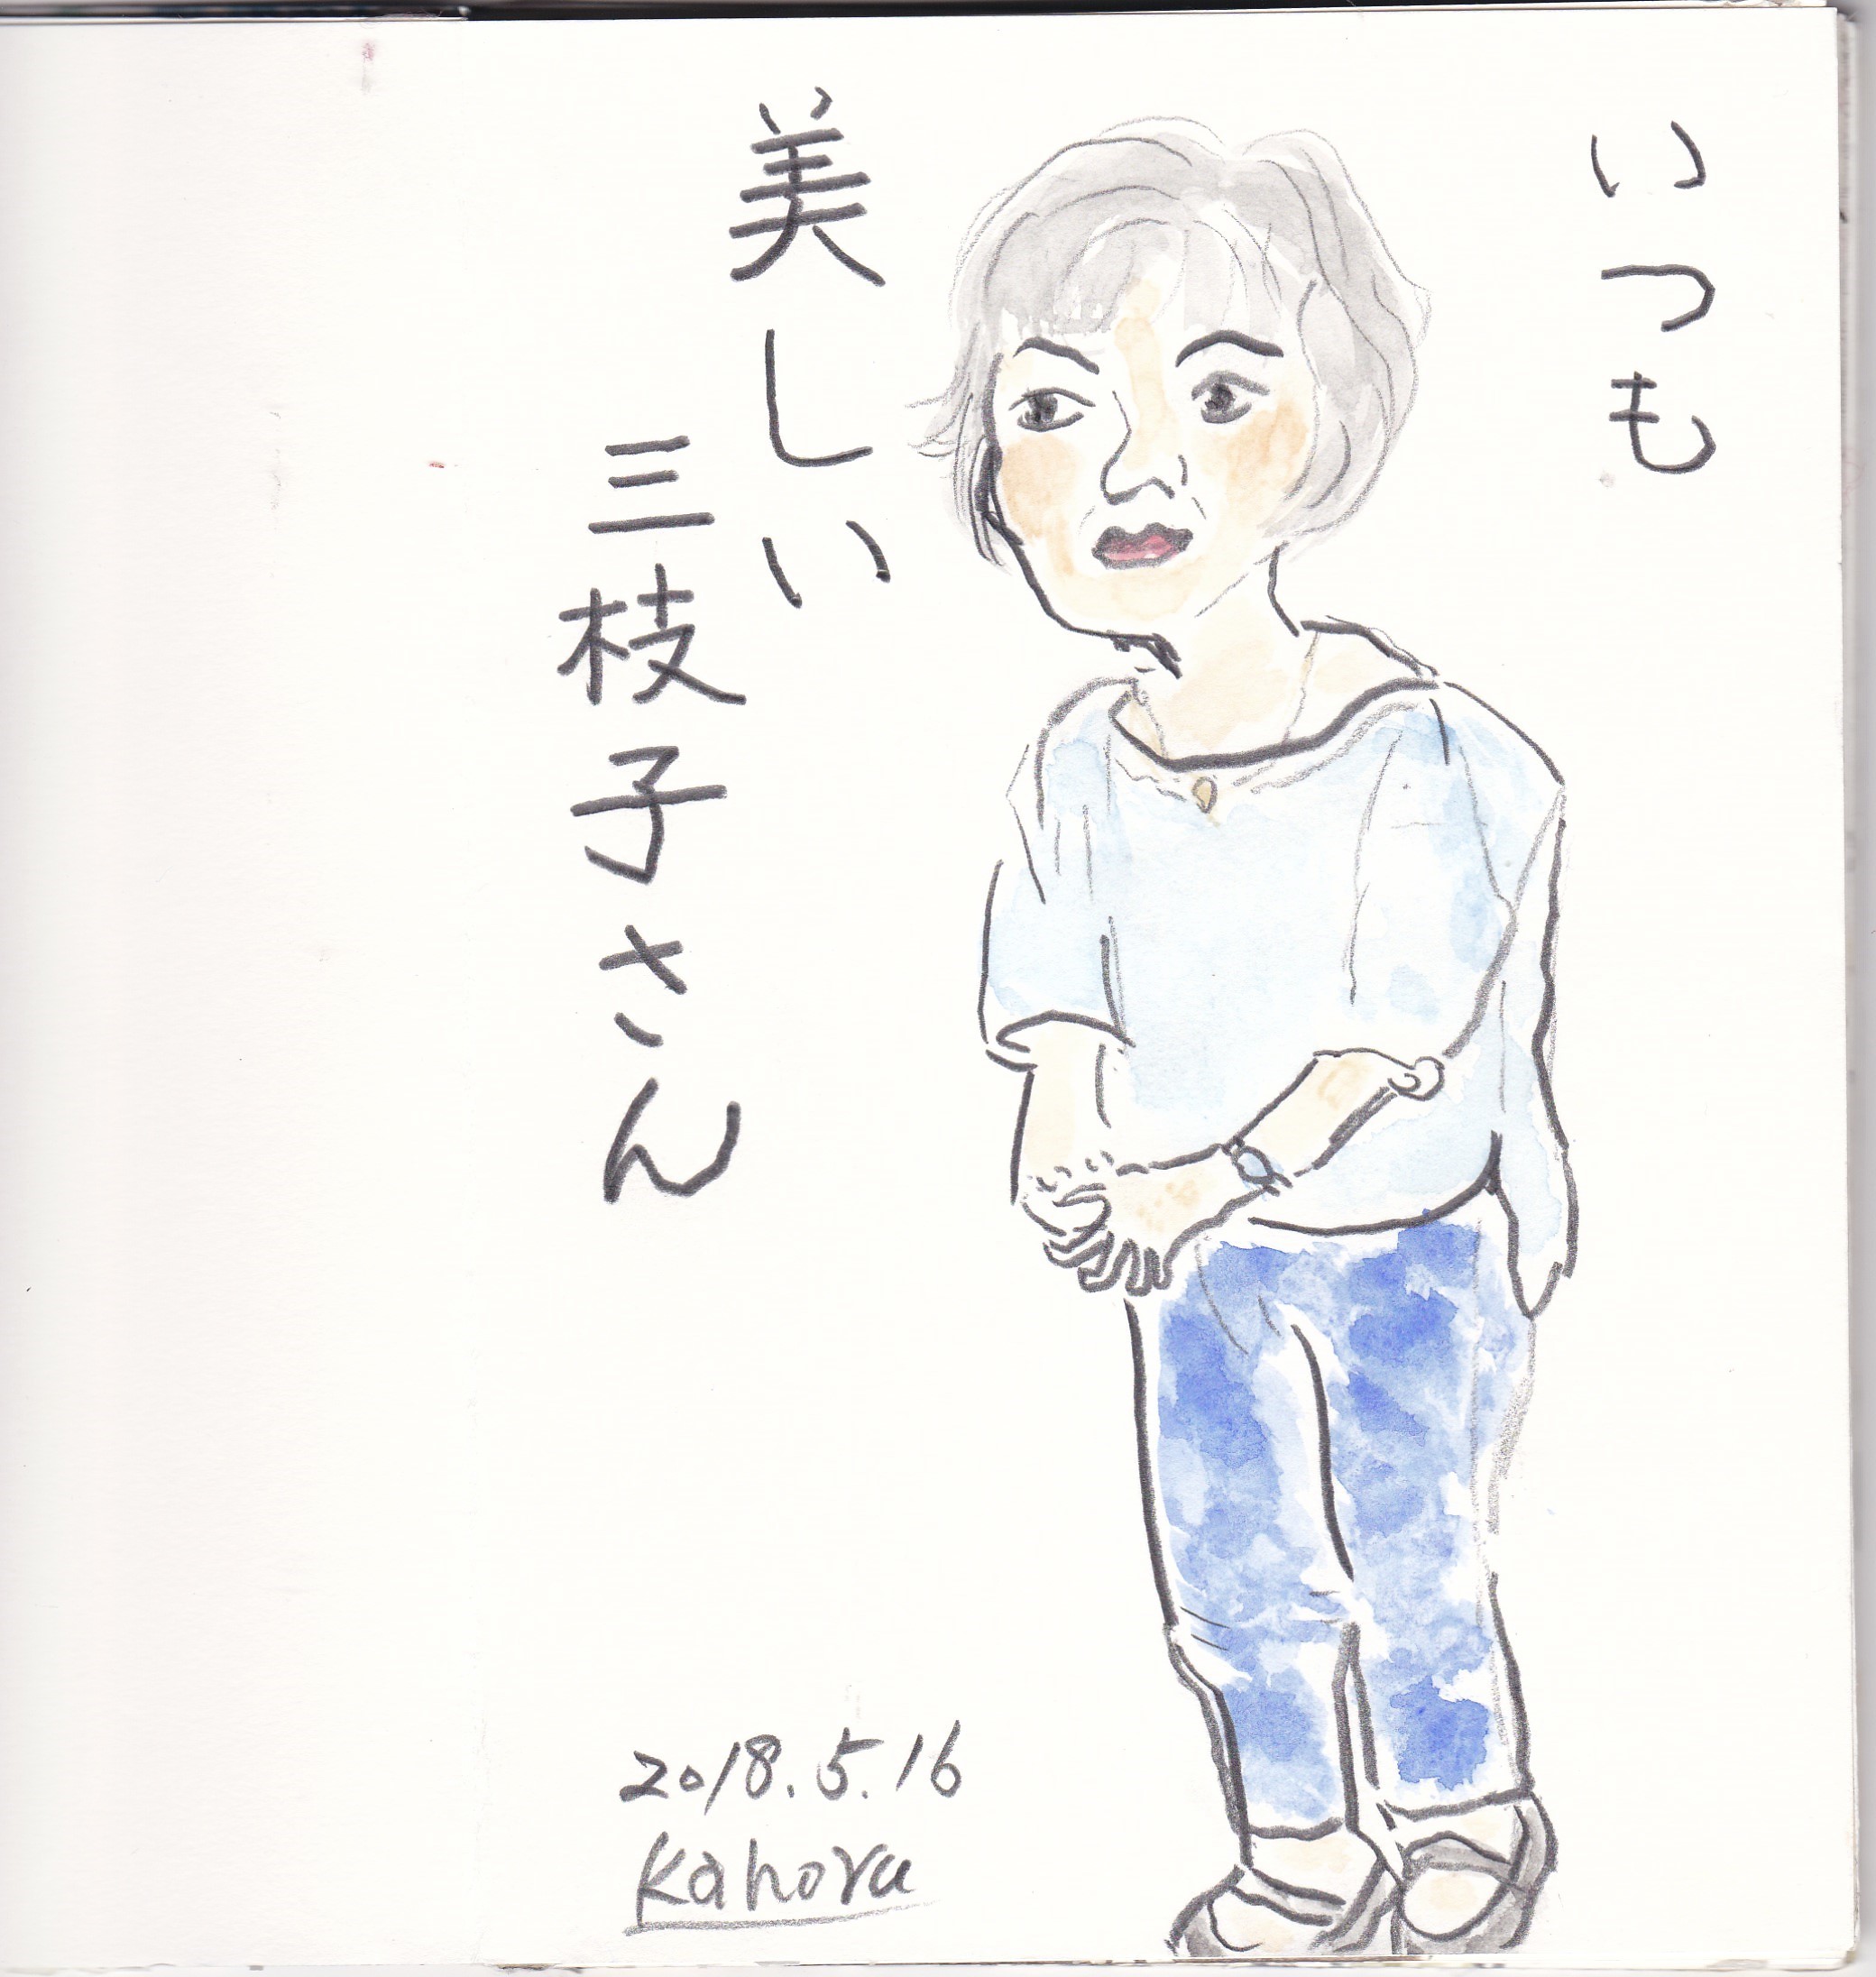 いつも
美しい
三枝子さん
2018.5.16
Kahoru